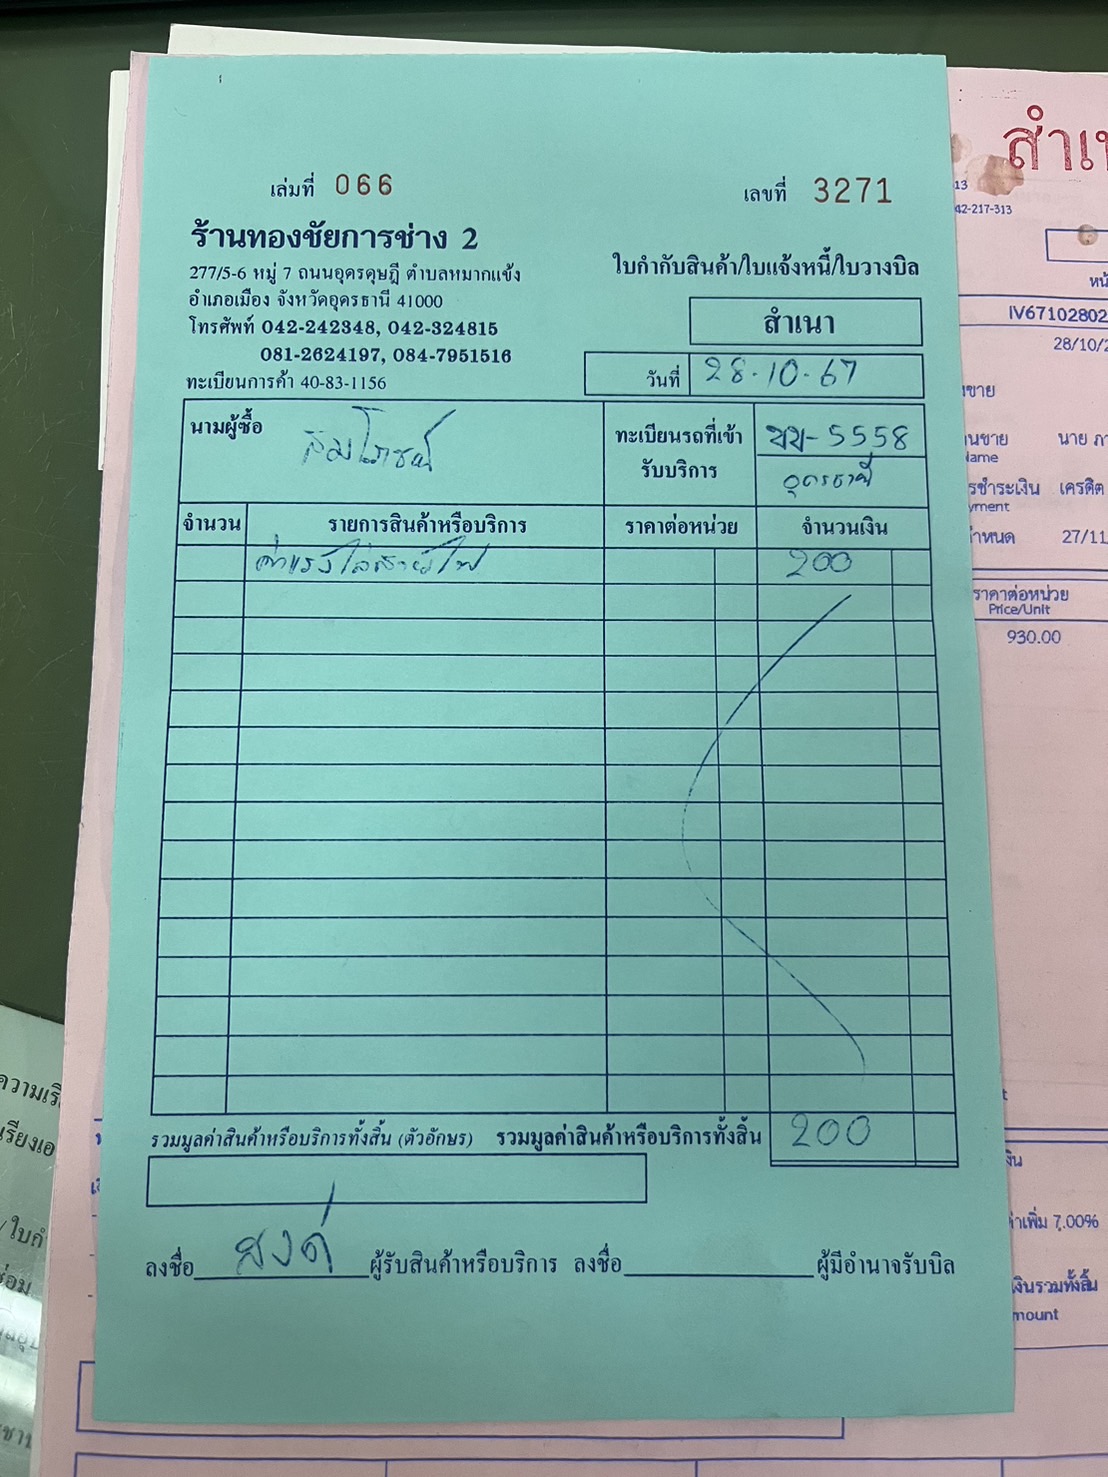 เล่มที่ 066
เลขที่ 3271
ร้านทองชัยการช่าง 2
277/5-6 หมู่ 7 ถนนอุดรดุษฎี ตำบลหมากแข้ง
อำเภอเมือง จังหวัดอุดรธานี 41000
โทรศัพท์ 042-242348, 042-324815
081-2624197, 084-7951516
ทะเบียนการค้า 40-83-1156
ใบกำกับสินค้า/ใบแจ้งหนี้/ใบวางบิล
สำเนา
วันที่ 28-10-67
นามผู้ซื้อ สมโภชน์
ทะเบียนรถที่เข้ารับบริการ ขข-5558
อุดรธานี
จำนวน รายการสินค้าหรือบริการ ราคาต่อหน่วย จำนวนเงิน
ค่าแรงใส่สายไฟ 200
รวมมูลค่าสินค้าหรือบริการทั้งสิ้น (ตัวอักษร) รวมมูลค่าสินค้าหรือบริการทั้งสิ้น 200
ลงชื่อ ผู้รับสินค้าหรือบริการ ลงชื่อ ผู้มีอำนาจรับบิล
13
42-217-313
IV67102802
28/10/2
นาย ภา
Name
รชำระเงิน เครดิต
yment
กำหนด 27/11
ราคาต่อหน่วย
Price/Unit
930.00
7.00%
เงินรวมทั้งสิ้น
mount